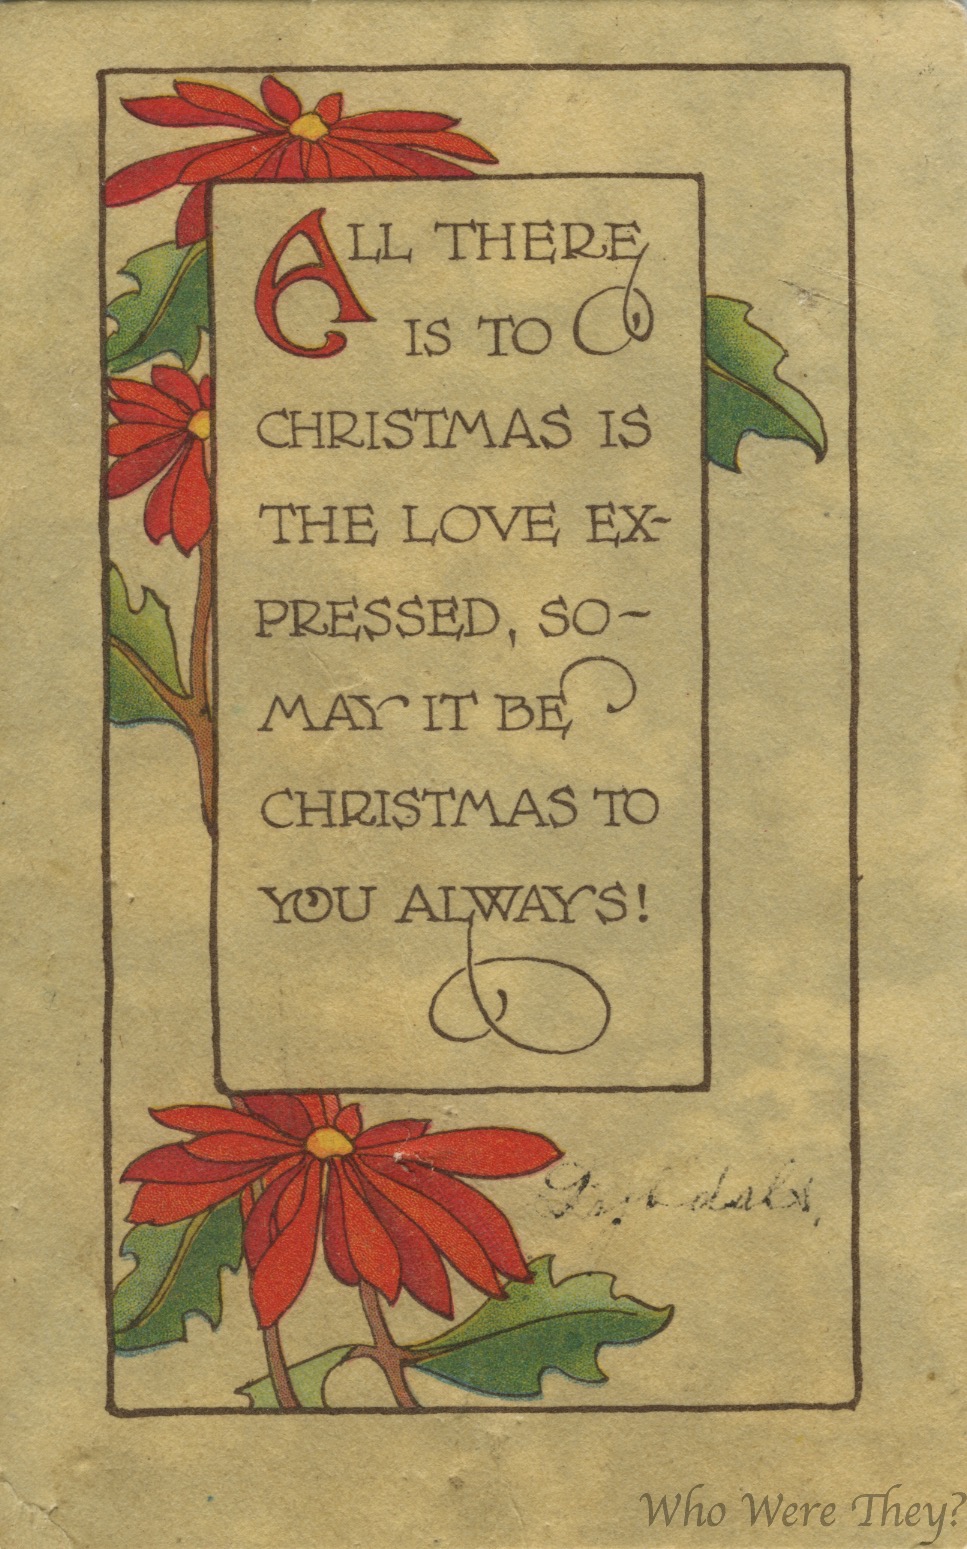 ALL THERE
IS TO
CHRISTMAS IS
THE LOVE EX-
PRESSED, SO-
MAY IT BE
CHRISTMAS TO
YOU ALWAYS!
Who Were They?